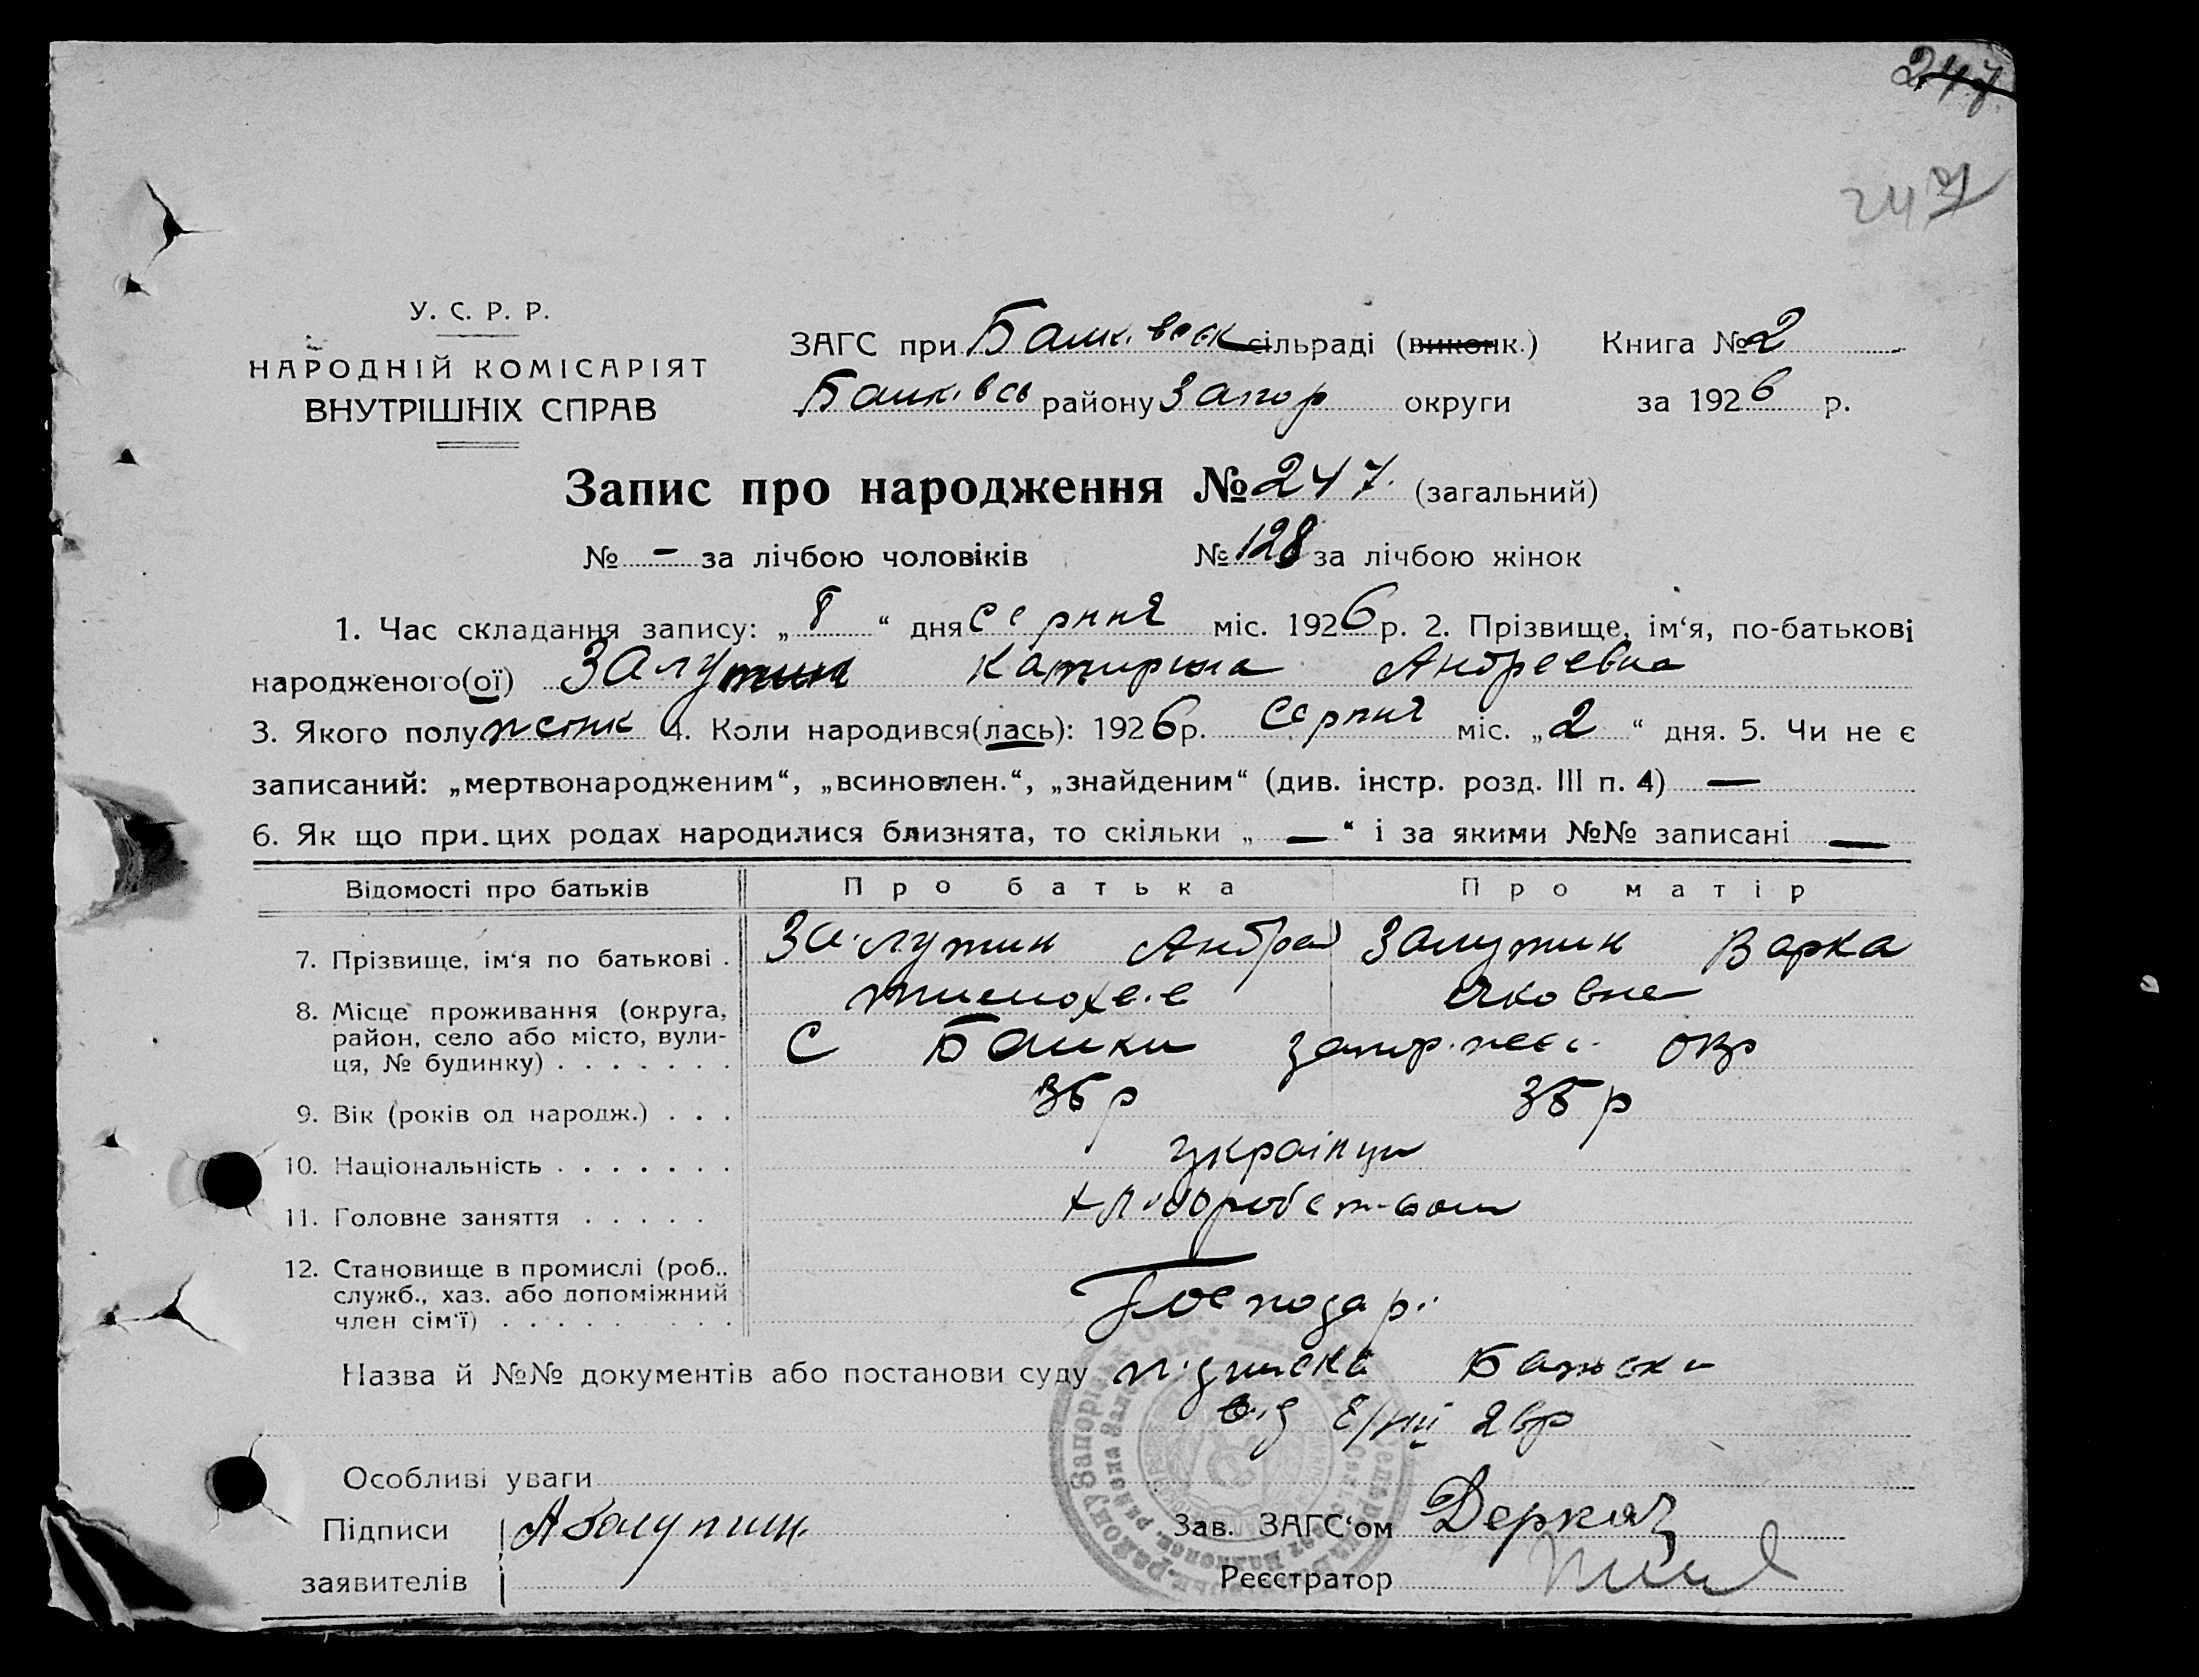 247
247
У. С. Р. Р.
НАРОДНІЙ КОМІСАРІЯТ
ВНУТРІШНІХ СПРАВ
ЗАГС при сільраді (виконк.) Книга № 2
району Запор округи за 1926 р.
Запис про народження № 247. (загальний)
№ — за лічбою чоловіків № 128 за лічбою жінок
1. Час складання запису: „ 8 “ дня серпня міс. 1926 р. 2. Прізвище, ім‘я, по-батькові
народженого(ої) Катирина Андреевна
3. Якого полу женк 4. Коли народився(лась): 1926 р. Серпня міс. „ 2 “ дня. 5. Чи не є
записаний: „мертвонародженим“, „всиновлен.“, „знайденим“ (див. інстр. розд. III п. 4) —
6. Як що при цих родах народилися близнята, то скільки „ — “ і за якими №№ записані —
Відомості про батьків Про батька Про матір
7. Прізвище, ім‘я по батькові . Варка
8. Місце проживання (округа,
район, село або місто, вули-
ця, № будинку) . . . . . . . С окр
9. Вік (років од народж.) . . . 36 р 35 р
10. Національність . . . . . . . українци
11. Головне заняття . . . . .
12. Становище в промислі (роб..
служб., хаз. або допоміжний
член сім‘ї) . . . . . . . . . Господарі
Назва й №№ документів або постанови суду підписка
від 8/VIII 26р
Особливі уваги
Підписи заявителів
Зав. ЗАГС‘ом Деркач
Реєстратор